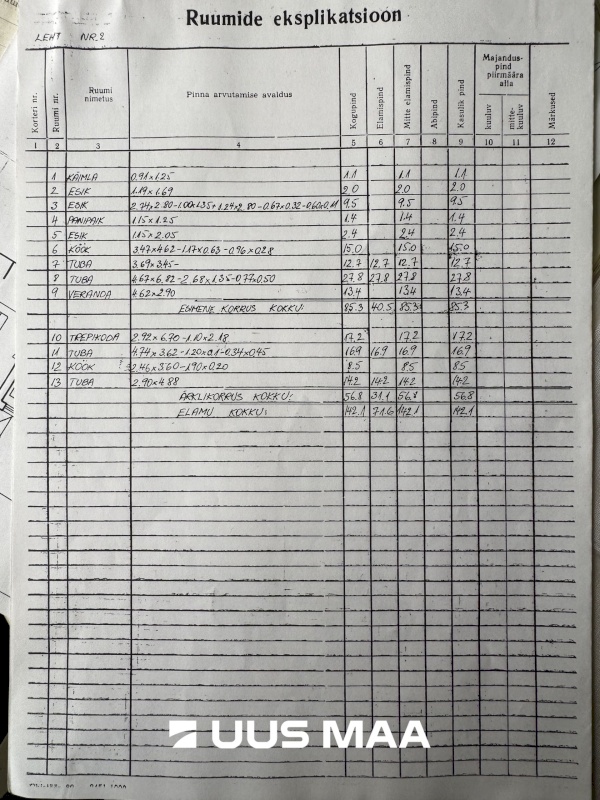 Ruumide eksplikatsioon
LEHT NR. 2
Korteri nr. Ruumi nr. Ruumi nimetus Pinna arvutamise avaldus Kogupind Elamispind Mitte elamispind Abipind Kasulik pind Majandus-pind piirmäära alla kuuluv mitte-kuuluv Märkused
1 2 3 4 5 6 7 8 9 10 11 12
1 KÄIMLA 0.91×1.25 1.1 1.1 1.1
2 ESIK 1.19×1.69 2.0 2.0 2.0
3 ESIK 2.74×2.80-1.00×1.35+1.24×2.80-0.67×0.32-0.60×0.11 9.5 9.5 9.5
4 PANIPAIK 1.15×1.25 1.4 1.4 1.4
5 ESIK 1.15×2.05 2.4 2.4 2.4
6 KÖÖK 3.47×4.62-1.17×0.63-0.96×0.28 15.0 15.0 15.0
7 TUBA 3.69×3.45- 12.7 12.7 12.7 12.7
8 TUBA 4.67×6.82-2.68×1.35-0.77×0.50 27.8 27.8 27.8 27.8
9 VERANDA 4.62×2.90 13.4 13.4 13.4
ESIMENE KORRUS KOKKU: 85.3 40.5 85.3 85.3
10 TREPIKODA 2.92×6.70-1.10×2.18 17.2 17.2 17.2
11 TUBA 4.74×3.62-1.20×0.1-0.34×0.45 16.9 16.9 16.9 16.9
12 KÖÖK 2.46×3.60-1.90×0.20 8.5 8.5 8.5
13 TUBA 2.90×4.88 14.2 14.2 14.2 14.2
ÄRKLIKORRUS KOKKU: 56.8 31.1 56.8 56.8
ELAMU KOKKU: 142.1 71.6 142.1 142.1
UUS MAA